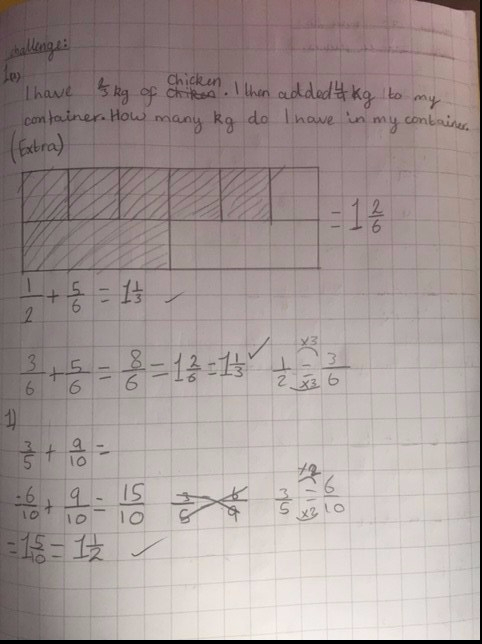 challenge:
I have kg of Chicken. I then added kg to my
container. How many kg do I have in my container.
(Extra)
= 1 2/6
1/2 + 5/6 = 1 1/3 ✓
3/6 + 5/6 = 8/6 = 1 2/6 = 1 1/3 ✓ 1/2 = 3/6 x3 x3
1)
3/5 + 9/10 =
6/10 + 9/10 = 15/10 3/5 = 6/10 x2 x2
= 1 5/10 = 1 1/2 ✓